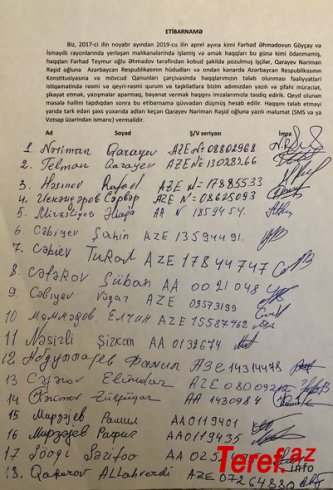 ETİBARNAMƏ
Biz, 2017-ci ilin noyabr ayından 2019-cu ilin aprel ayına kimi Fərhad Əhmədovun Göyçay və
İsmayıllı rayonlarında yerləşən malikanələrində işləmiş və əmək haqqları bu günə kimi ödənməmiş,
haqqları Fərhad Teymur oğlu Əhmədov tərəfindən kobud şəkildə pozulmuş işçilər, Qarayev Nəriman
Rəşid oğluna Azərbaycan Respublikasının hüdudları və ondan kənarda Azərbaycan Respublikasının
Konstitusiyasına və mövcud Qanunları çərçivəsində haqqlarımızın tələb olunması fəaliyyətləri
istiqamətində rəsmi və qeyri-rəsmi qurum və təşkilatlara bizim adımızdan yazılı və şifahi müraciət,
şikayət etmək, yazışmalar aparmaq, bəyanat vermək haqqını imzalarımızla təsdiq edirik. Qeyd olunan
məsələ həllini tapdıqdan sonra bu etibarnamə qüvvədən düşmüş hesab edilir. Haqqını tələb etməyi
yarıda tərk edən şəxs yuxarıda adları keçən Qarayev Nəriman Rəşid oğluna yazılı məlumat (SMS və ya
Votsap üzərindən ismarıc) verməlidir.
Ad Soyad Ş/V seriyası İmza
1. Nəriman Qarayev AZE № 08802968
2. Telman Qarayev AZE № 13028266
3. Həsənov Rafael AZE № 17885533
4. AZE № 08625093
5. AA №
6. Cəbiyev Şahin AZE 13594491.
7. Cəbiev Tural AZE 17844747
8. CəfəRov Şuban AA 0021048
9. Cəbiyev Vüqar AZE 09573199
10 Мəммəдов Елчин AZE 15587462
11 Nəsirli Şizkan AA 0138674
12 АЗЕ 14314478
13 Elindar AZE
14 AA 1430984
15 Мирзəјев Рамил AA 0119401
16 Мирзəјев Рафис AA 0119435
17 AA 025
18. Qakurov Allahverdi AZE 07264880
Teref.az
info